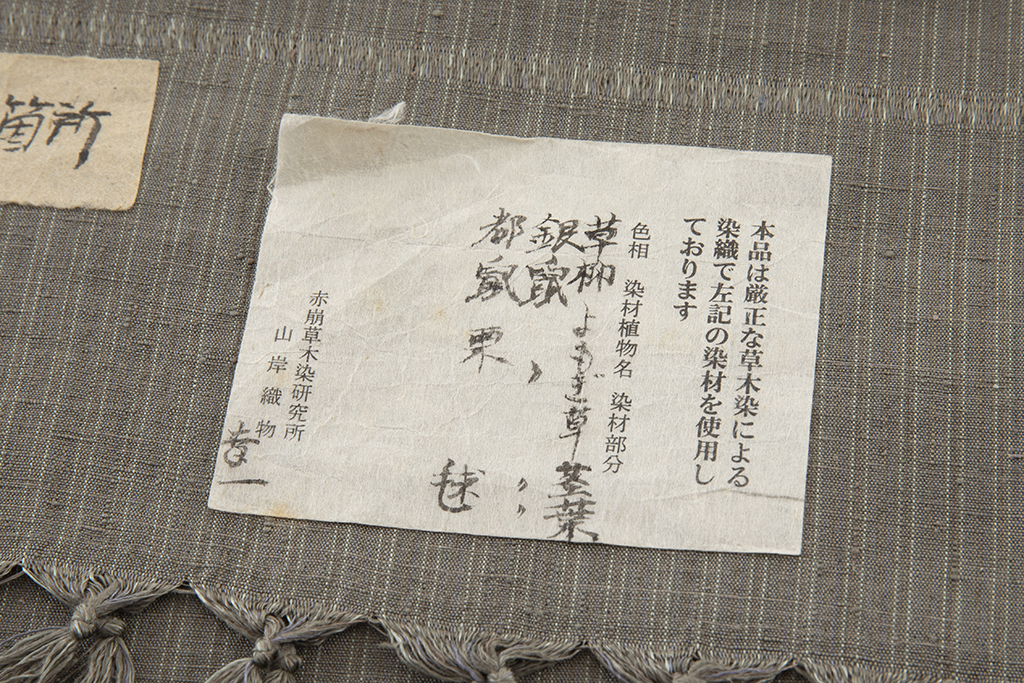 本品は厳正な草木染による
染織で左記の染材を使用し
ております
色相 染材植物名 染材部分
草柳 よもぎ草 茎葉
銀鼠 〃 〃
都鼠 栗 毬
赤崩草木染研究所
山岸織物
幸一
箇所